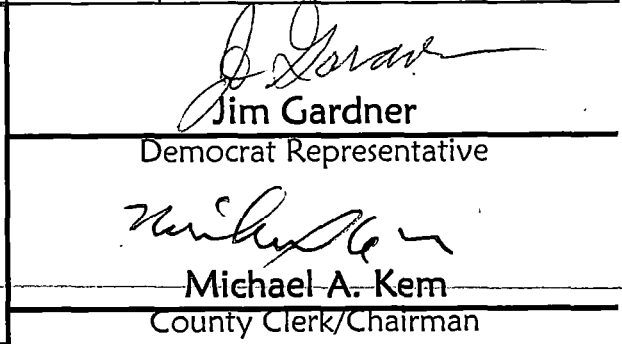 Jim Gardner
Democrat Representative
Michael A. Kem
County Clerk/Chairman